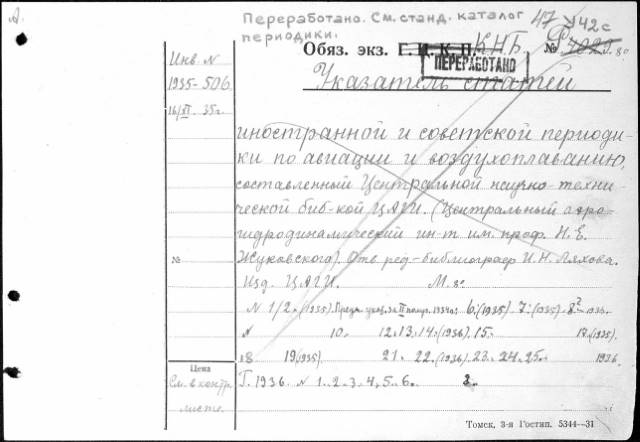 А.
Переработано. См. станд. каталог
периодики.
47 У42с
Обяз. экз. Г. Н. К. П. К.Н.Б. № Ф 8°
ПЕРЕРАБОТАНО
Инв. N
1935-506
16/XI. 35г.
Указатель статей
иностранной и советской периоди-
ки по авиации и воздухоплаванию,
составленный Центральной научно-техни-
ческой биб-кой ЦАГИ. (Центральный аэро-
гидродинамический ин-т им. проф. Н. Е.
№ Жуковского). Отв. ред-библиограф И. Н. Ляхова.
Изд. ЦАГИ. М. 8°
N 1/2. (1935). 6. (1935). 7. (1935). 8 1936.
N 10. 12. 13. 14. (1936). 15. (1935)
18 19 (1935) 21. 22. (1936). 23. 24. 25. 1936.
Цена
См. в контр.
листе.
Г. 1936. N 1. 2. 3. 4, 5. 6.
Томск, 3-я Гостип. 5344—31